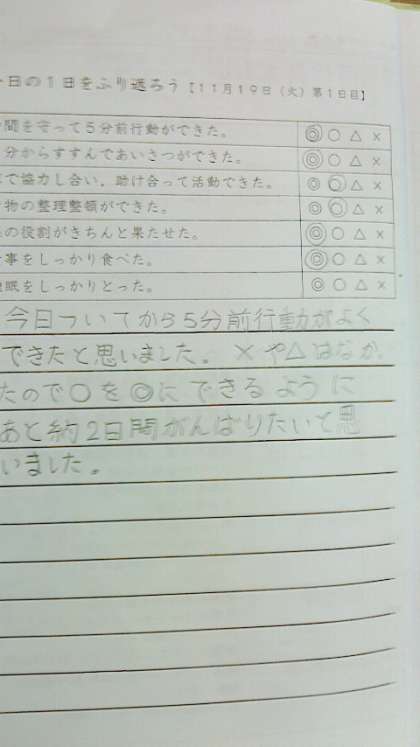 日の1日をふり返ろう【11月19日（火）第1日目】
間を守って5分前行動ができた。 ◎ ○ △ ×
分からすすんであいさつができた。 ◎ ○ △ ×
で協力し合い、助け合って活動できた。 ◎ ○ △ ×
物の整理整頓ができた。 ◎ ○ △ ×
の役割がきちんと果たせた。 ◎ ○ △ ×
事をしっかり食べた。 ◎ ○ △ ×
眠をしっかりとった。 ◎ ○ △ ×
今日ついてから5分前行動がよく
できたと思いました。×や△はなか
たので○を◎にできるように
あと約2日間がんばりたいと思
いました。